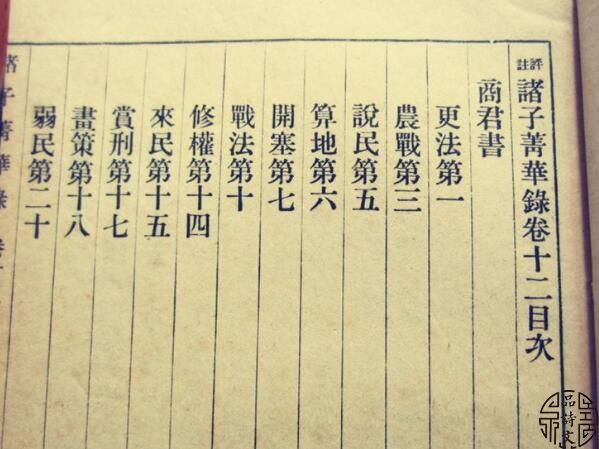 評註諸子菁華錄卷十二目次
商君書
更法第一
農戰第三
說民第五
算地第六
開塞第七
戰法第十
修權第十四
來民第十五
賞刑第十七
畫策第十八
弱民第二十
諸子菁華錄 卷
品詩文